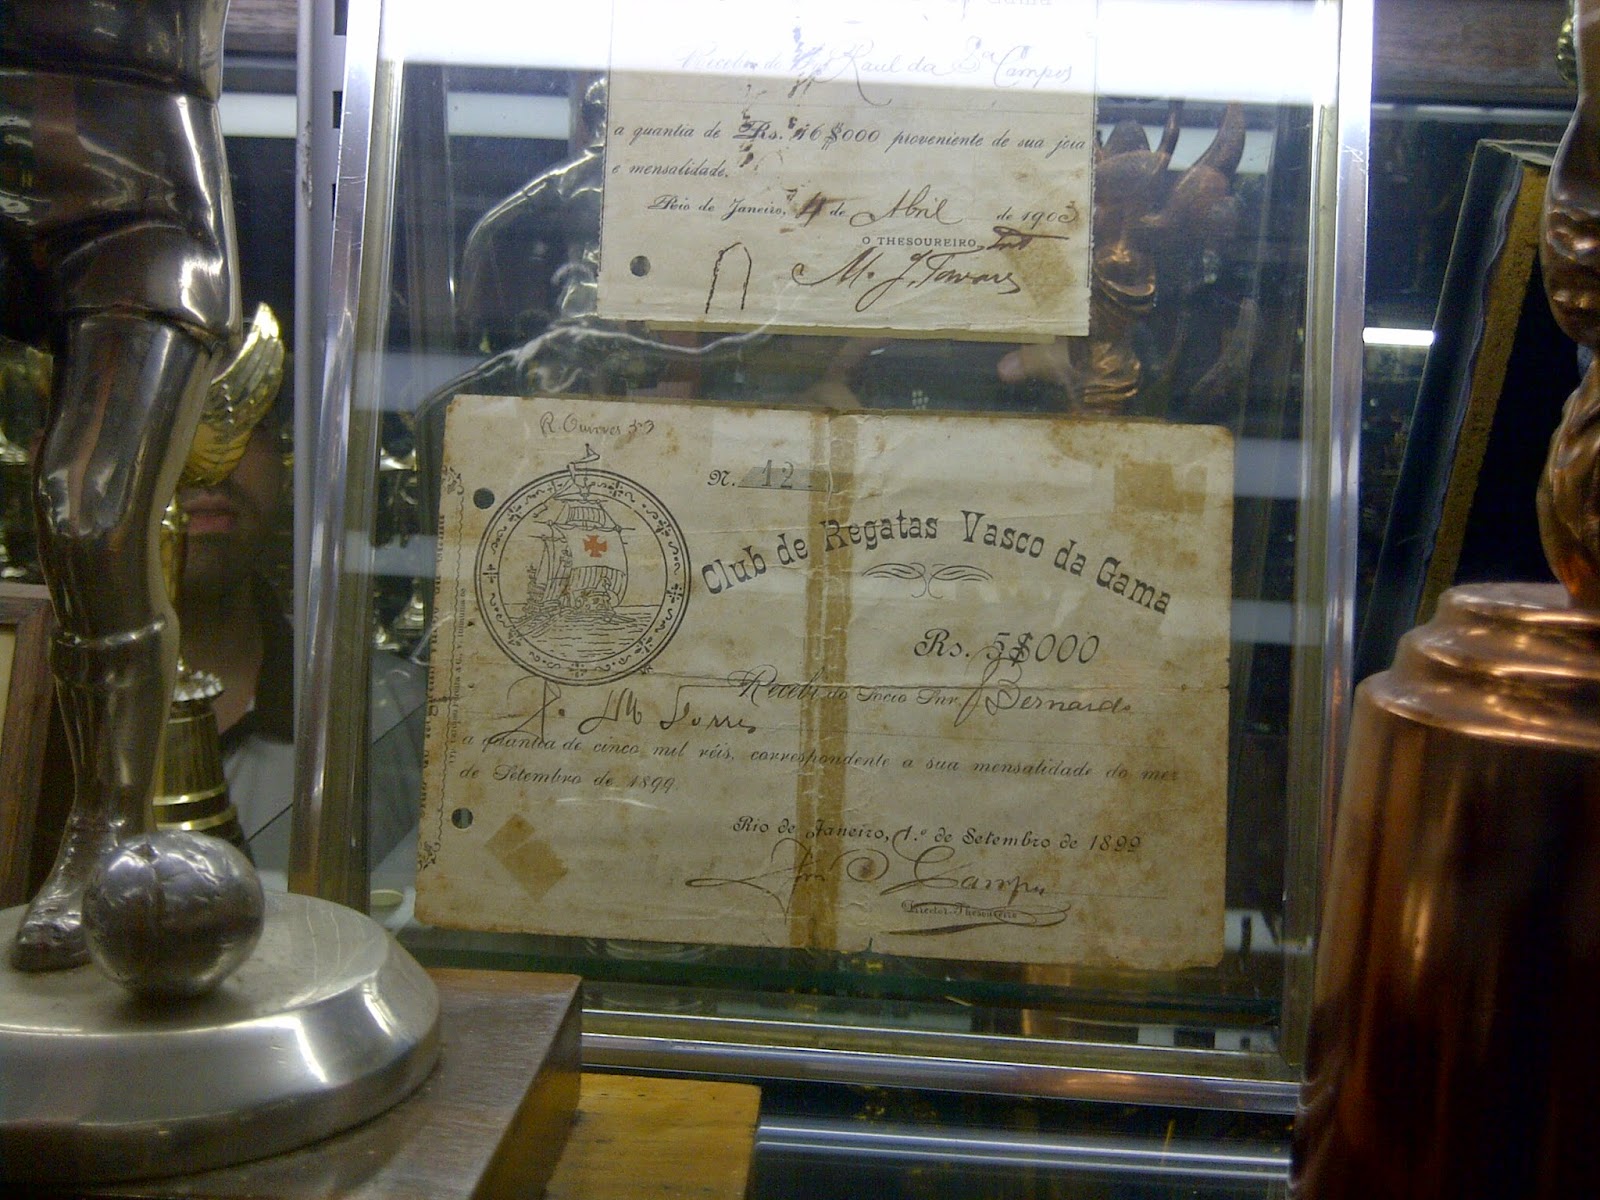 Recebi do Snr. Raul da Sª Campos
a quantia de Rs. 16$000 proveniente de sua joia
e mensalidade.
Rio de Janeiro, 4 de Abril de 1903
O THESOUREIRO, Int
M. J. Tavares
N. 12
Club de Regatas Vasco da Gama
Rs. 5$000
Recebi do Socio Snr. Bernardo
J. M Torres
a quantia de cinco mil réis, correspondente a sua mensalidade do mez
de Setembro de 1899
Rio de Janeiro, 1.º de Setembro de 1899
José Campos
Director-Thesoureiro